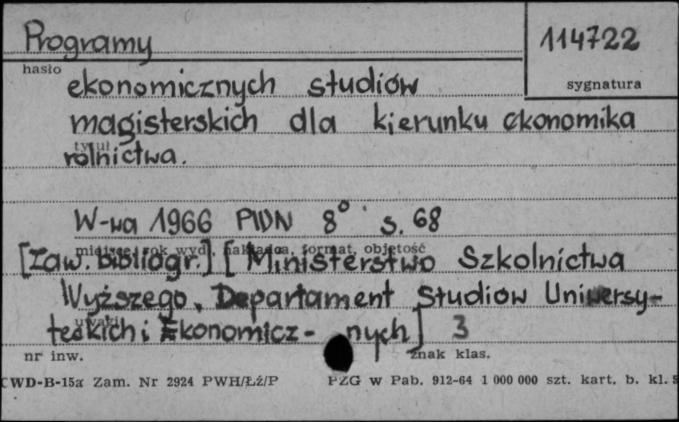 Programy
114722
hasło
sygnatura
ekonomicznych studiów
magisterskich dla kierunku ekonomika
tytuł
rolnictwa.
W-wa 1966 PWN 8° s. 68
miejsce i rok wyd., nakładca, format, objętość
[Zaw. bibliogr.] [Ministerstwo Szkolnictwa
Wyższego. Departament Studiów Uniwersy-
uwagi
teckich i Ekonomicz- nych] 3
nr inw.
znak klas.
CWD-B-15a Zam. Nr 2924 PWH/Łź/P
PZG w Pab. 912-64 1 000 000 szt. kart. b. kl.